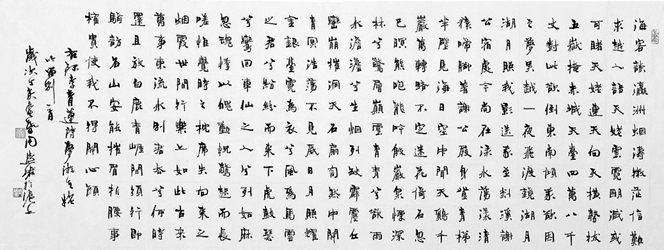 海客談瀛洲煙濤微茫信難
求越人語天姥雲霓明滅或
可睹天姥連天向天橫勢拔
五嶽掩赤城天台四萬八千
丈對此欲倒東南傾我欲因
之夢吳越一夜飛渡鏡湖月
湖月照我影送我至剡溪謝
公宿處今尚在淥水蕩漾清
猿啼腳著謝公屐身登青雲梯
半壁見海日空中聞天雞千
巖萬轉路不定迷花倚石忽
已暝熊咆龍吟殷巖泉慄深
林兮驚層巔雲青青兮欲雨
水澹澹兮生煙列缺霹靂丘
巒崩摧洞天石扉訇然中開
青冥浩蕩不見底日月照耀
金銀臺霓為衣兮風為馬雲
之君兮紛紛而來下虎鼓瑟
兮鸞回車仙之人兮列如麻
忽魂悸以魄動怳驚起而長
嗟惟覺時之枕席失向來之
煙霞世間行樂亦如此古來
萬事東流水別君去兮何時
還且放白鹿青崖間須行即
騎訪名山安能摧眉折腰事
權貴使我不得開心顏
右錄李青蓮詩夢游天姥
吟留別一首
歲次